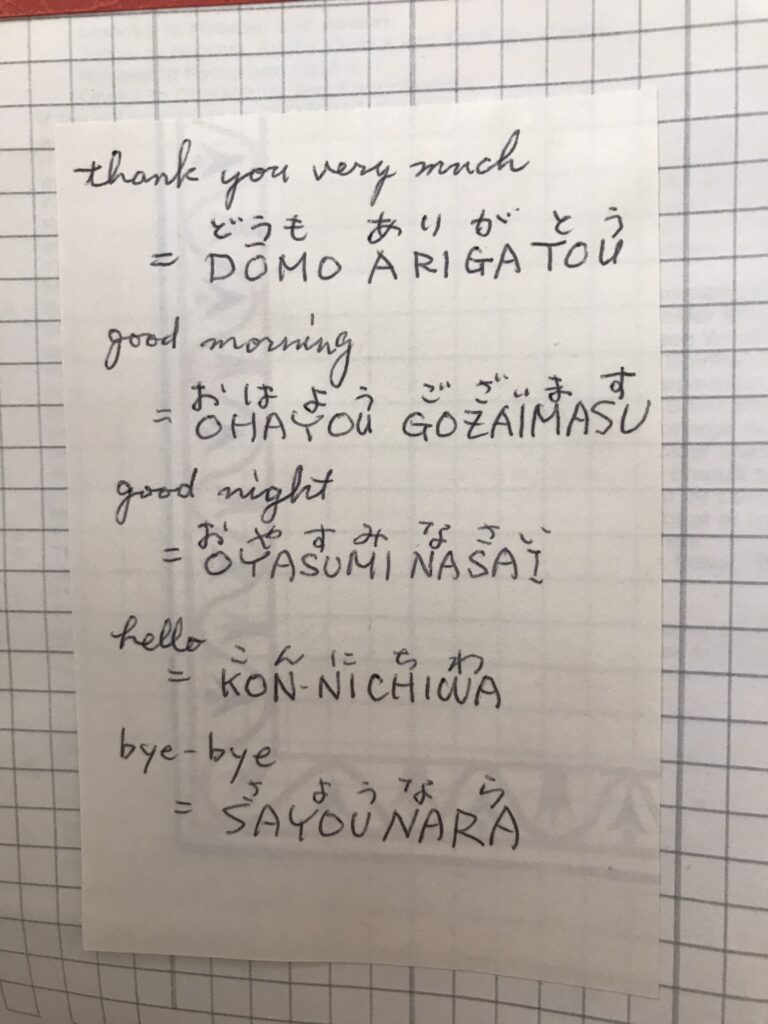 thank you very much
どうも ありがとう
= DŌMO ARIGATOU
good morning
おはよう ございます
= OHAYOU GOZAIMASU
good night
おやすみ なさい
= OYASUMI NASAI
hello
こんにちわ
= KON-NICHIWA
bye-bye
さようなら
= SAYOUNARA